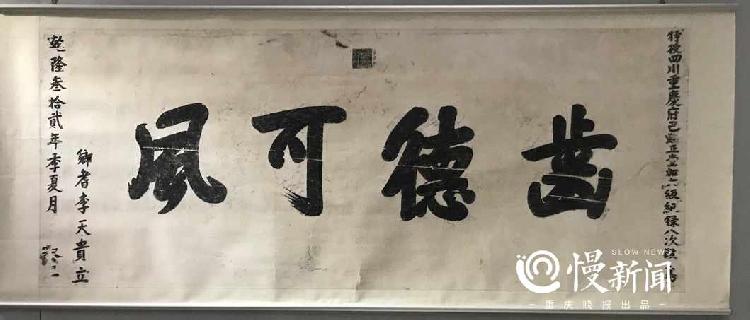 特授四川重慶府巴縣正堂加六級紀錄八次
齒德可風
鄉耆李天貴立
乾隆叁拾貳年季夏月
SLOW NEWS
慢新闻
重庆晚报出品